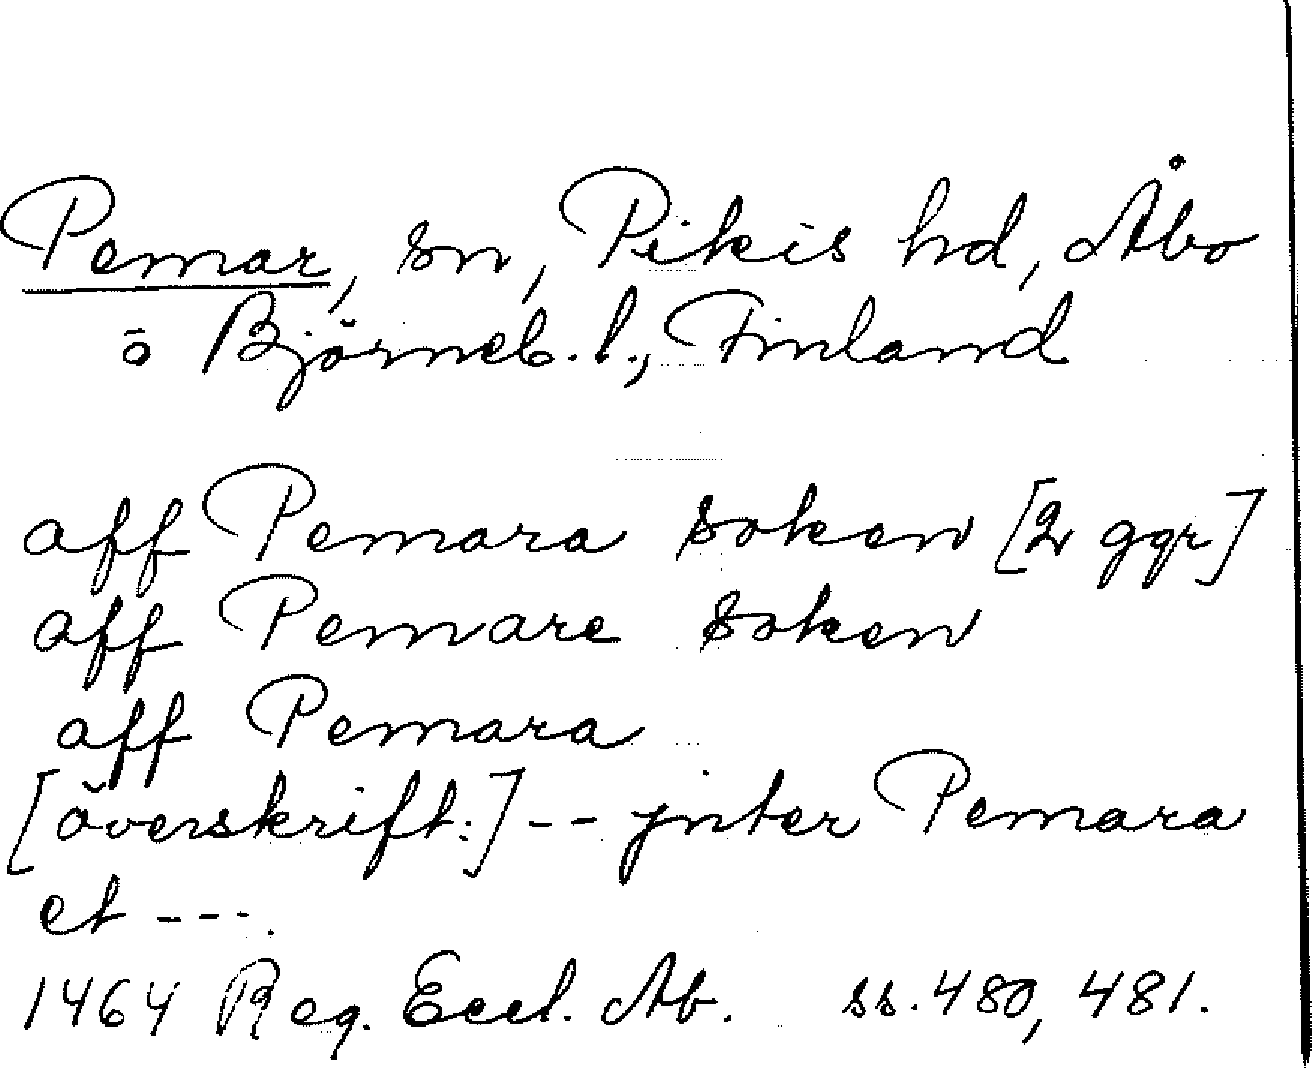 Pemar, sn, Pikis hd, Åbo
o Björneb. l., Finland
aff Pemara soken [2 ggr]
aff Pemare soken
aff Pemara
[överskrift:] -- ynter Pemara
et ---.
1464 Reg. Eccl. Ab. ss. 480, 481.